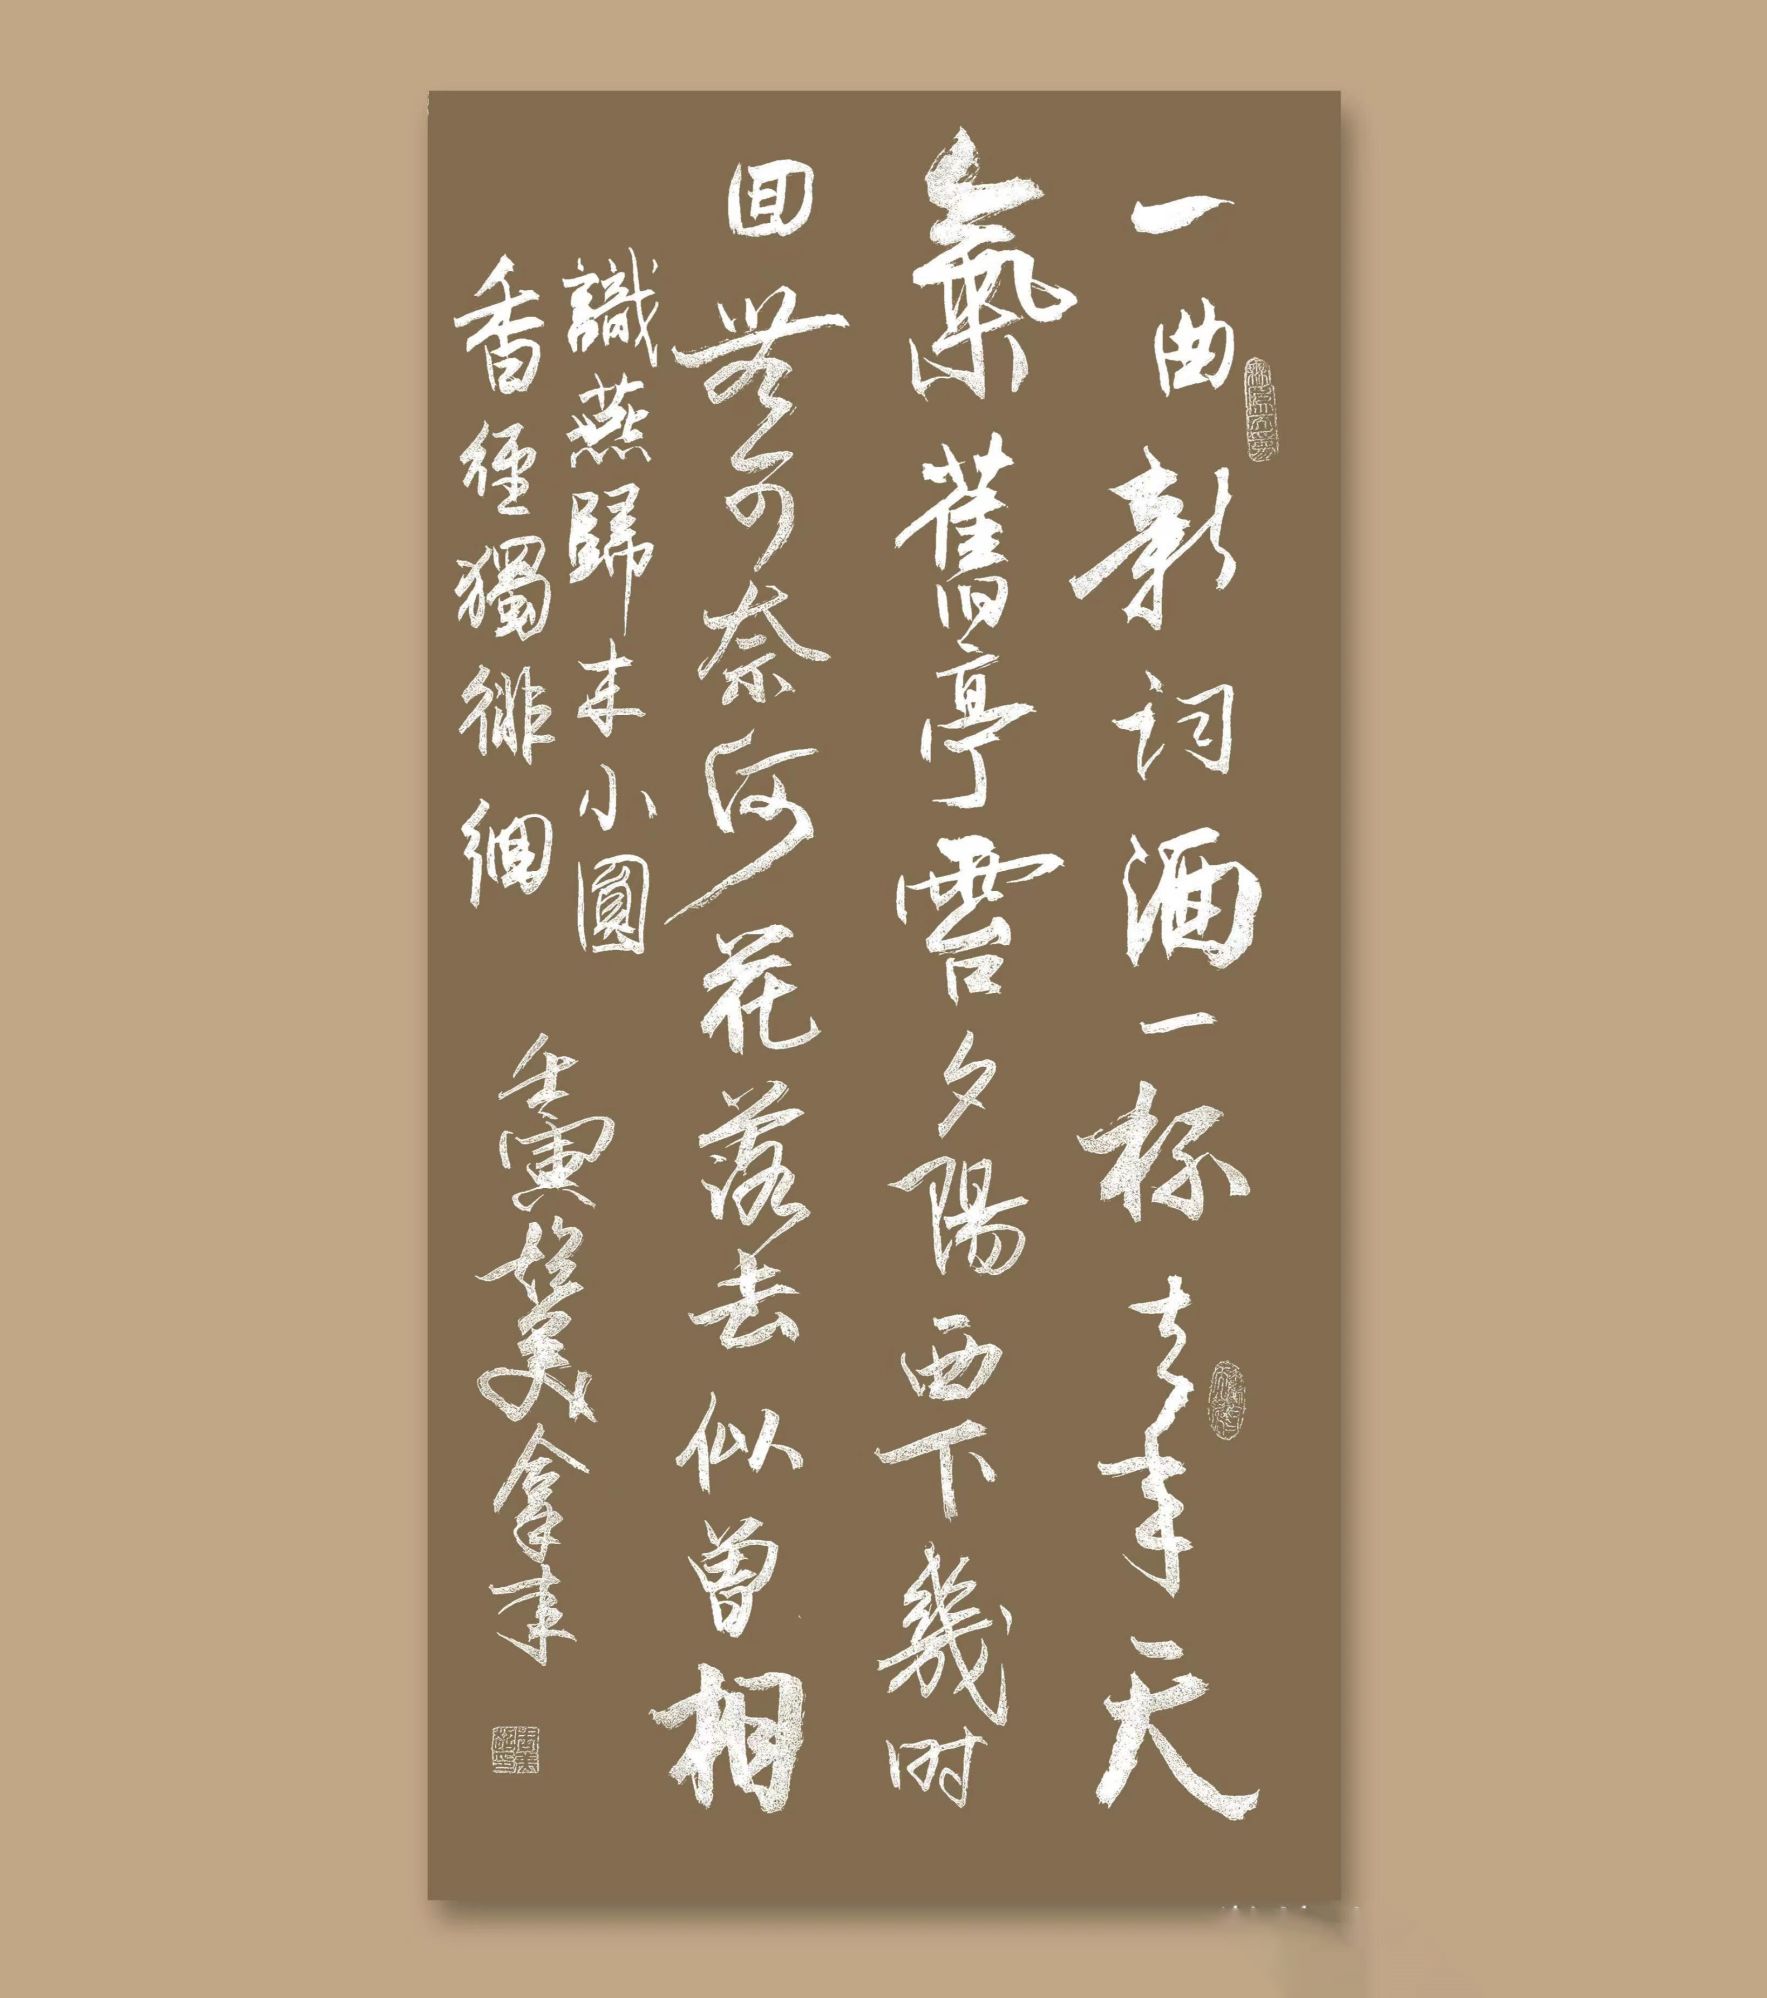 一曲新词酒一杯去年天
氣舊亭臺夕陽西下幾时
回無可奈何花落去似曾相
識燕歸来小圓
香徑獨徘徊
壬寅